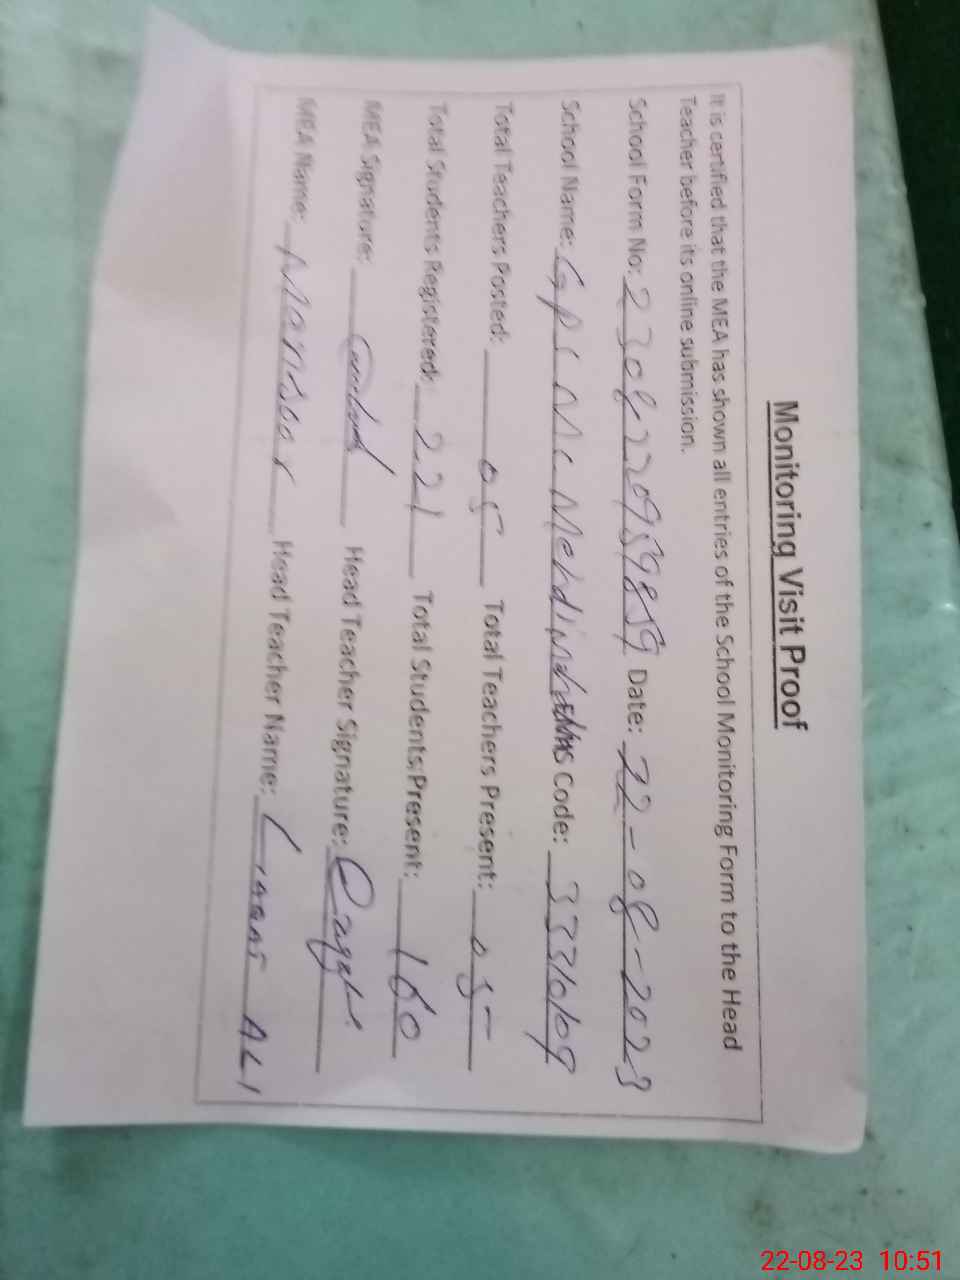 Monitoring Visit Proof
It is certified that the MEA has shown all entries of the School Monitoring Form to the Head
Teacher before its online submission.
School Form No: 2308220959859 Date: 22-08-2023
School Name: Code: 33310109
Total Teachers Posted: 05 Total Teachers Present: 05
Total Students Registered: 221 Total Students Present: 160
MEA Signature: Head Teacher Signature:
MEA Name: Mansoor Head Teacher Name: ALI
22-08-23 10:51